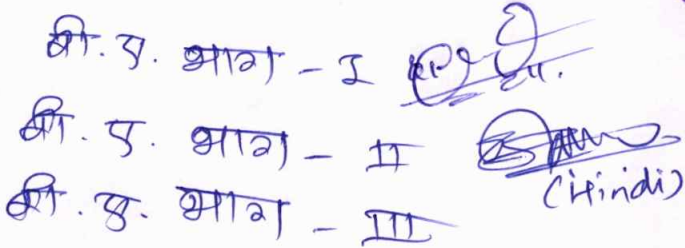 बी. ए. भाग - I
बी. ए. भाग - II
(Hindi)
बी. ए. भाग - III